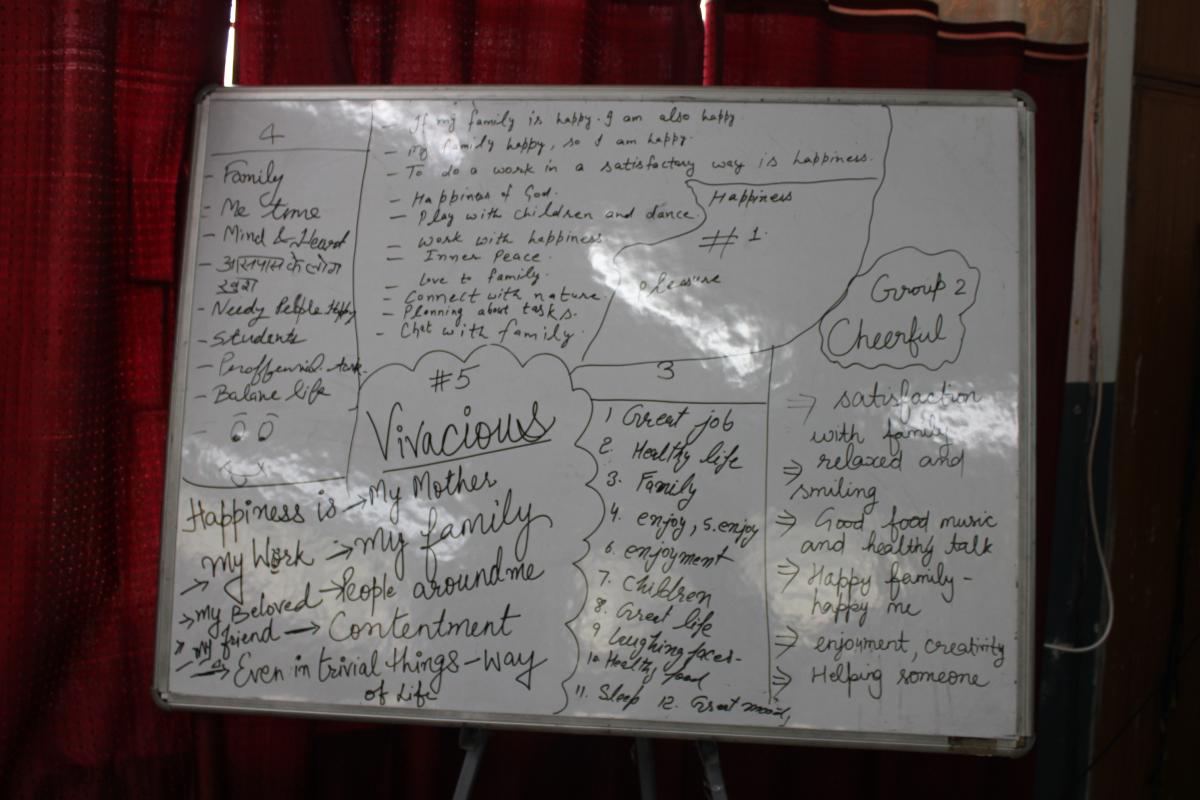 4
- Family
- Me time
- Mind & Heart
- आसपास के लोग
खुश
- Needy People Happy
- Students
- Proffesnial task
- Balane life
- If my family is happy. I am also happy.
- my family happy, so I am happy.
- To do a work in a satisfactory way is happiness.
- Happiness of God.
- Play with children and dance.
- Work with happiness
- Inner Peace.
Love to family.
- Connect with nature.
- Planning about tasks.
- Chat with family.
Happiness
# 1.
Pleasure
Group 2
Cheerful
⇒ satisfaction
with family
⇒ relaxed and
smiling
⇒ Good food music
and healthy talk
⇒ Happy family -
happy me
⇒ enjoyment, creativity
⇒ Helping someone
3
1 Great job
2. Healthy life
3. Family
4. enjoy, 5. enjoy
6. enjoyment
7. Children
8. Great life
9 laughing faces-
10 Healthy food
11. Sleep 12. Great mood,
#5
Vivacious
Happiness is → My Mother
→ my Work → my family
→ my Beloved → People around me
→ my friend → Contentment
→ Even in trivial things - way
of Life